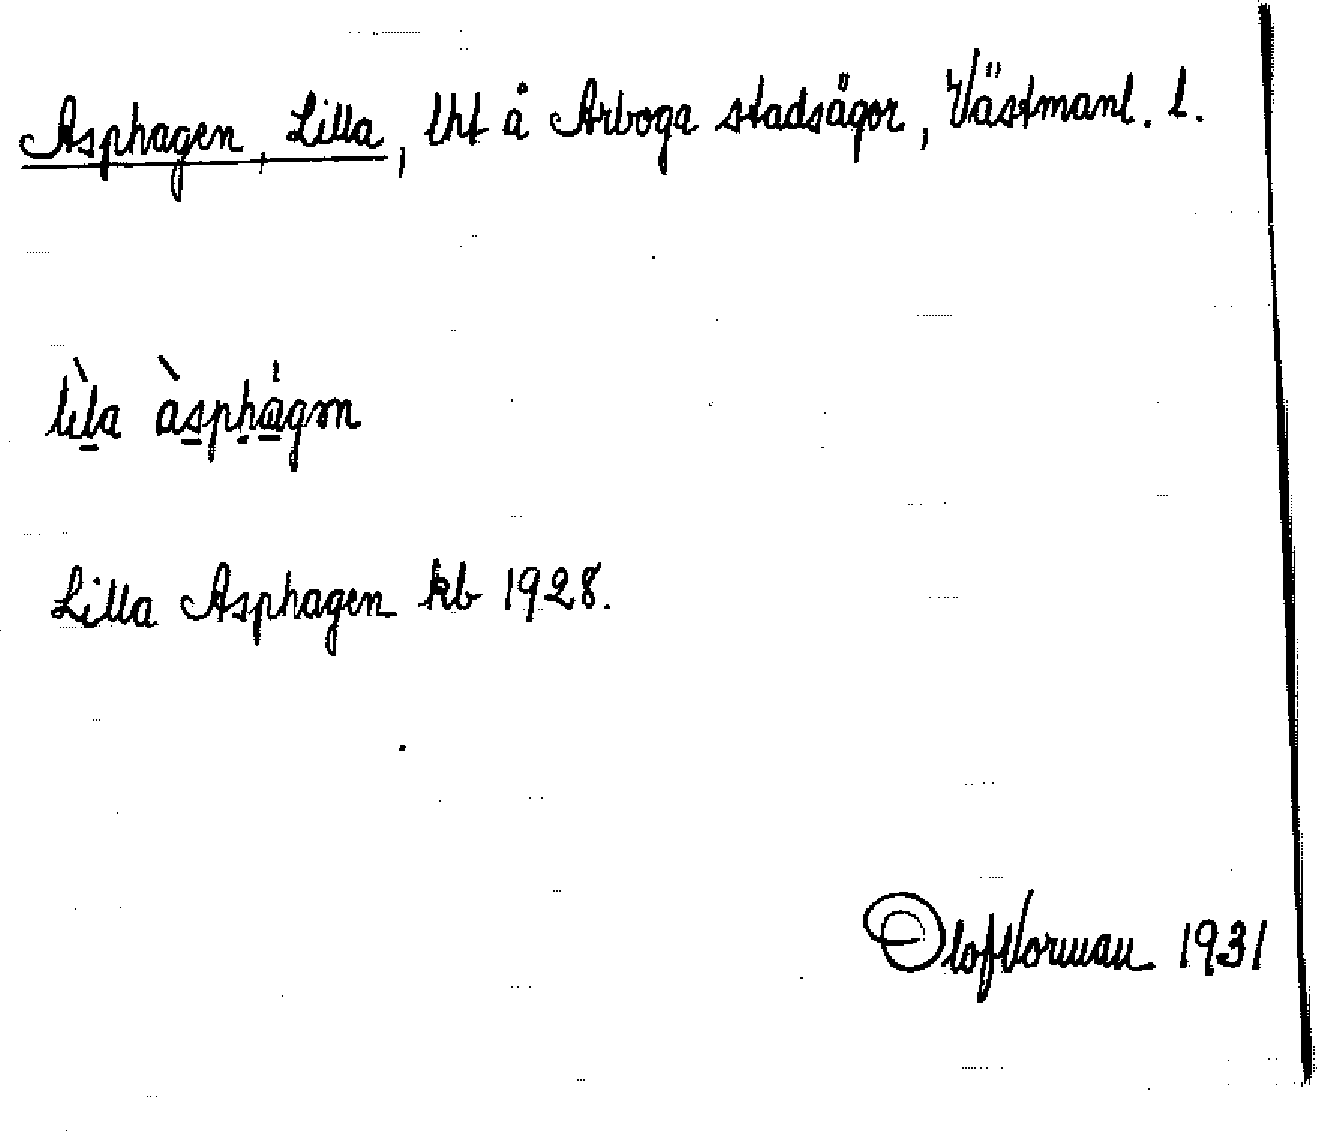 Asphagen, Lilla, lht å Arboga stadsägor, Västmanl. l.
lìla àsphágən
Lilla Asphagen kb 1928.
Olof Vorman 1931